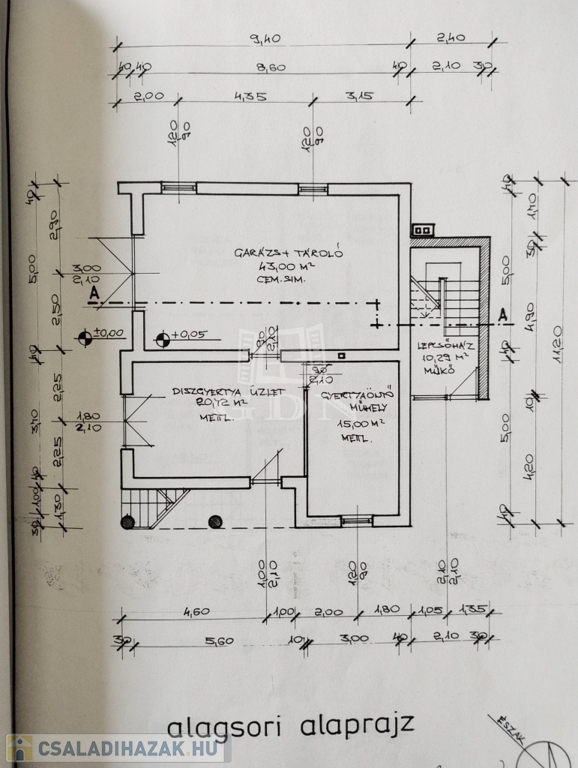 9,40
2,40
40
40
8,60
40
2,10
30
2,00
4,35
3,15
120
90
120
90
40
2,90
5,00
3,00
2,10
2,50
GARÁZS + TÁROLÓ
43,00 M²
CEM. SIM.
A
A
±0,00
+0,05
90
2,10
LÉPCSŐHÁZ
10,29 M²
MŰKŐ
1,70
30
5,00
4,90
11,20
40
2,25
3,70
1,80
2,10
2,25
DISZGYERTYA ÜZLET
20,72 M²
METL.
90
2,10
GYERTYAÖNTŐ
MŰHELY
15,00 M²
METL.
GDN
10
40
5,00
4,20
40
40
1,00
30
1,30
1,00
2,10
120
90
2,10
2,10
4,60
1,00
2,00
1,80
1,05
1,35
30
5,60
10
3,00
40
2,10
30
alagsori alaprajz
ÉSZAK
CSALADIHAZAK.HU